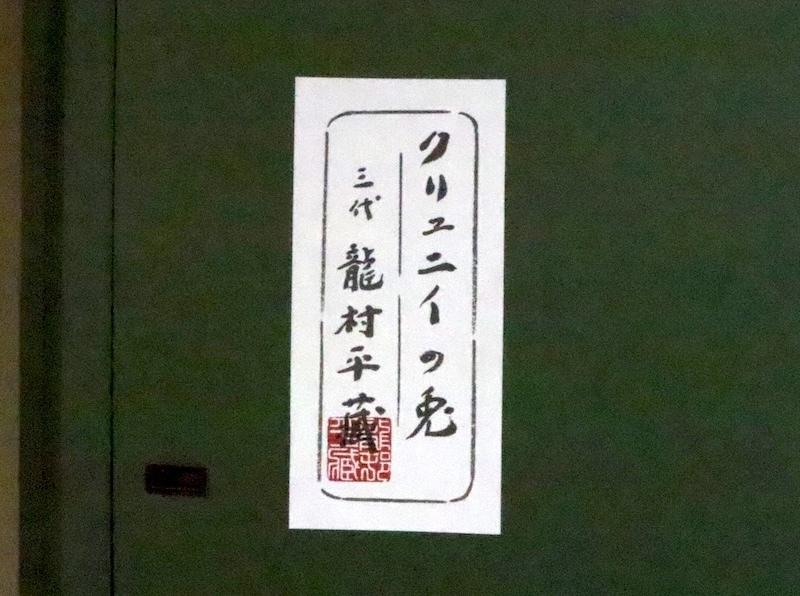 クリュニイの兎
三代 龍村平藏